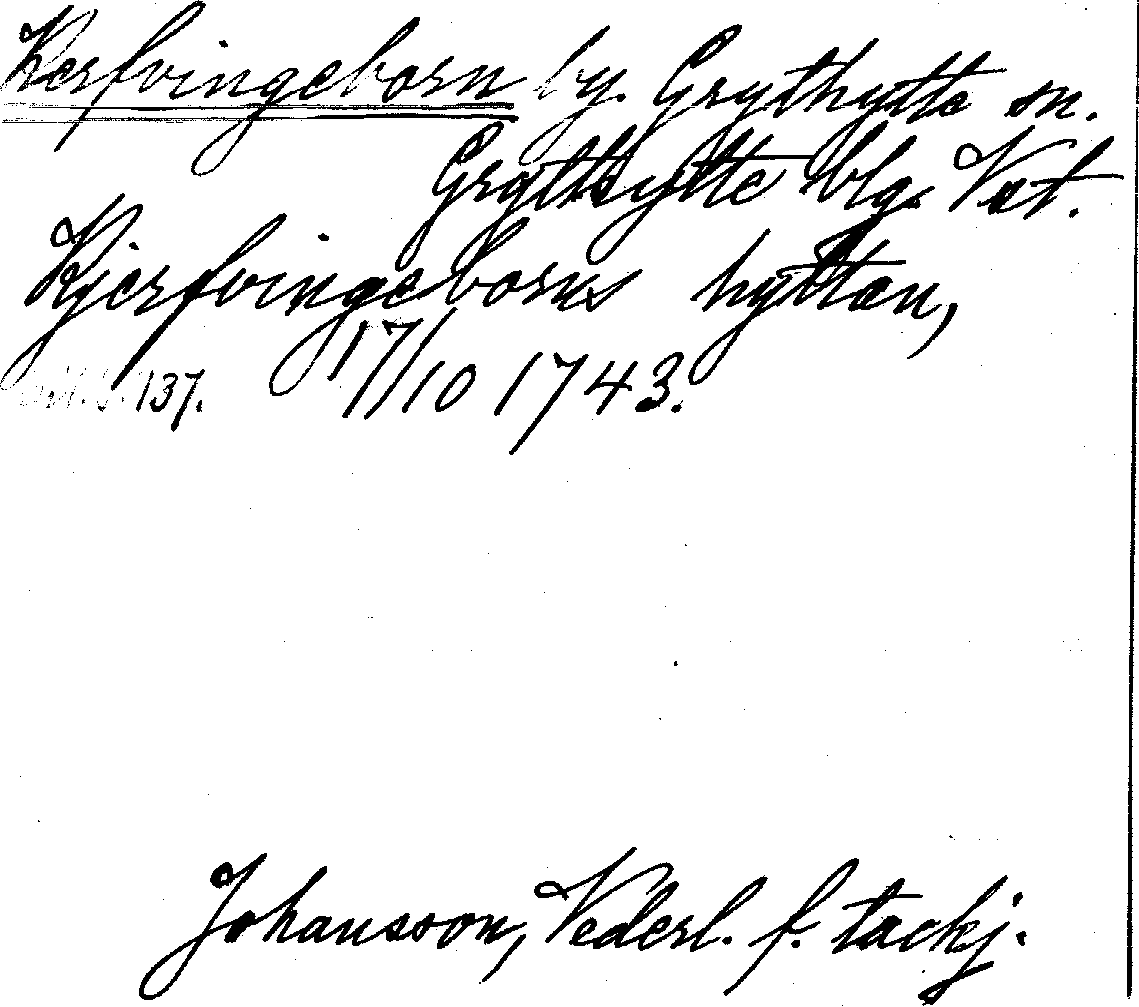 Kerfvingeborn by. Grythytte sn.
Grytthytte blg. Vst.
Kjerfvingeborns hyttan,
137. 17/10 1743.
Johansson, Vederl. f. tackj.